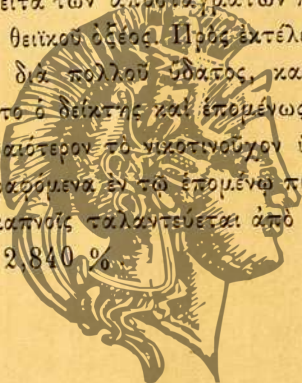 ειτα τῶν ἀποσταγμάτων
θειϊκοῦ ὀξέος. Πρὸς ἐκτέλε
διὰ πολλοῦ ὕδατος, κα
το ὁ δείκτης καὶ ἑπομένως
αιότερον τὸ νικοτινοῦχον
αφόμενα ἐν τῷ ἑπομένῳ π
καπνοῖς ταλαντεύεται ἀπὸ
2,840 %.